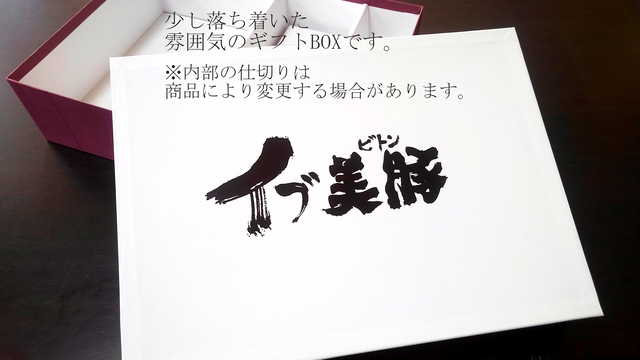 少し落ち着いた
雰囲気のギフトBOXです。
※内部の仕切りは
商品により変更する場合があります。
ビトン
イブ美豚